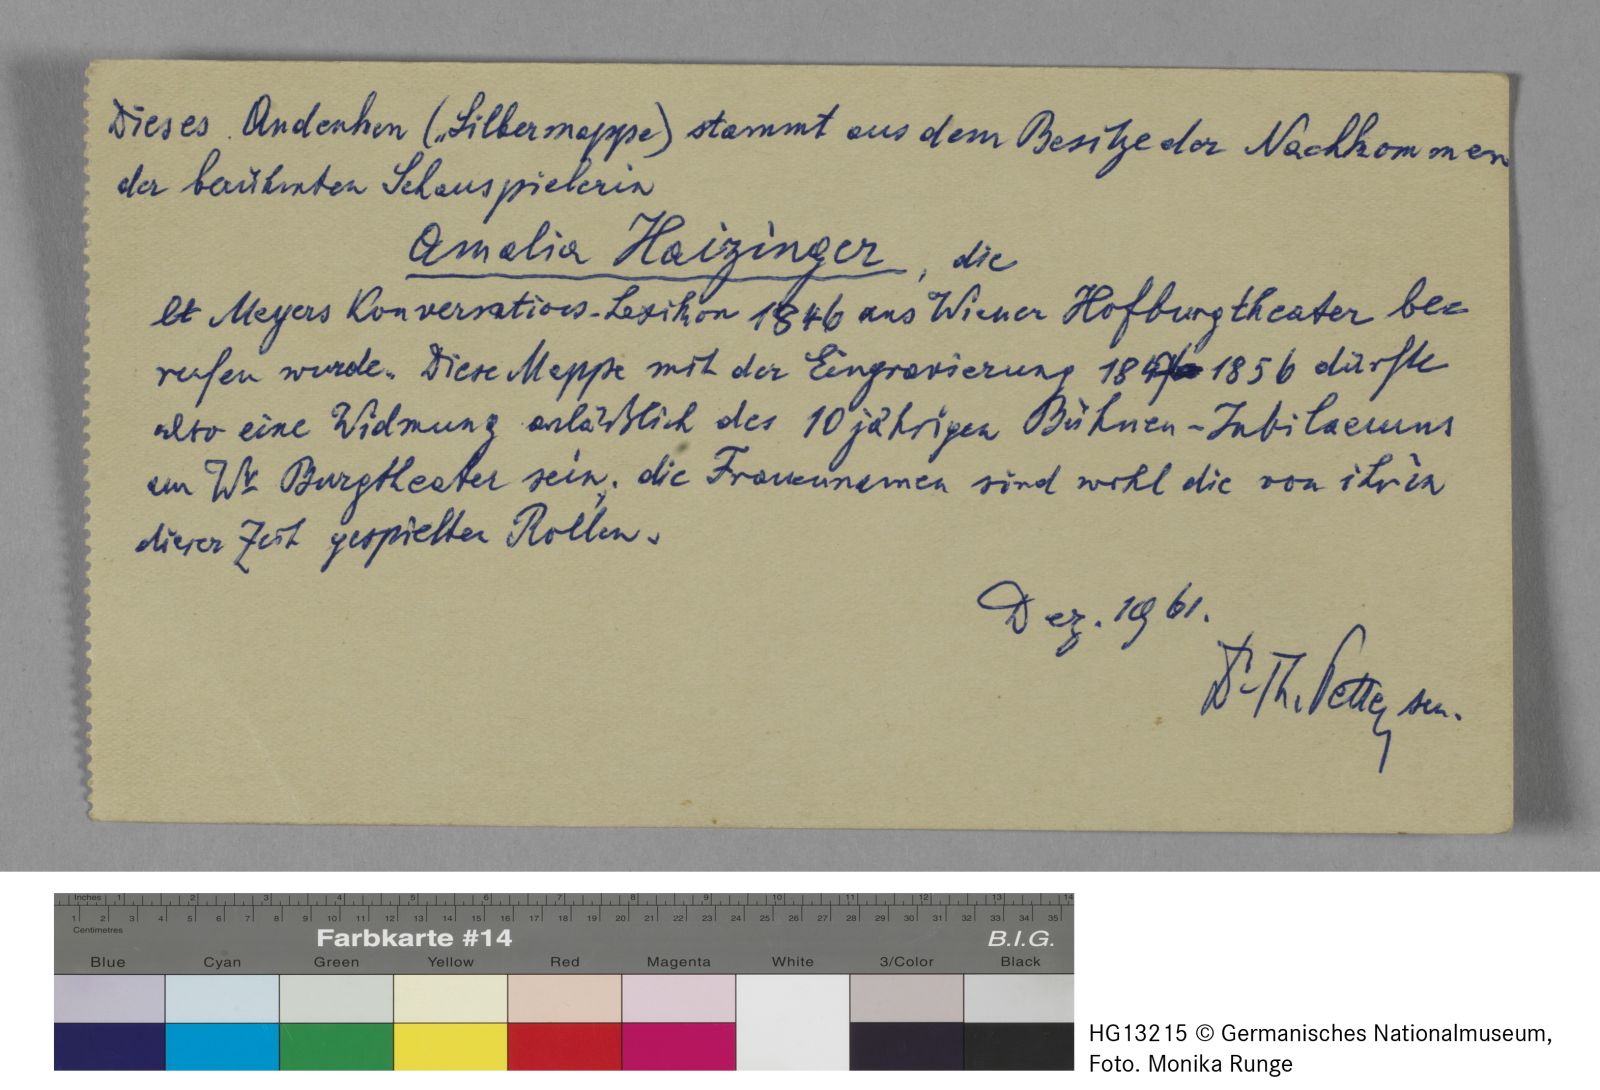 Dieses Andenken („Silbermappe) stammt aus dem Besitze der Nachkommen
der berühmten Schauspielerin
Amalia Haizinger, die
lt Meyers Konversations-Lexikon 1846 ans Wiener Hofburgtheater be=
rufen wurde. Diese Mappe mit der Eingravierung 1846 1856 dürfte
also eine Widmung anläßlich des 10 jährigen Bühnen-Jubilaeums
am Wr Burgtheater sein; die Frauennamen sind wohl die von ihr in
dieser Zeit gespielten Rollen.
Dez. 1961.
Dr. Th. sen.
Inches 1 2 3 4 5 6 7 8 9 10 11 12 13 14
1 2 3 4 5 6 7 8 9 10 11 12 13 14 15 16 17 18 19 20 21 22 23 24 25 26 27 28 29 30 31 32 33 34 35
Centimetres
Farbkarte #14 B.I.G.
Blue Cyan Green Yellow Red Magenta White 3/Color Black
HG13215 © Germanisches Nationalmuseum,
Foto. Monika Runge